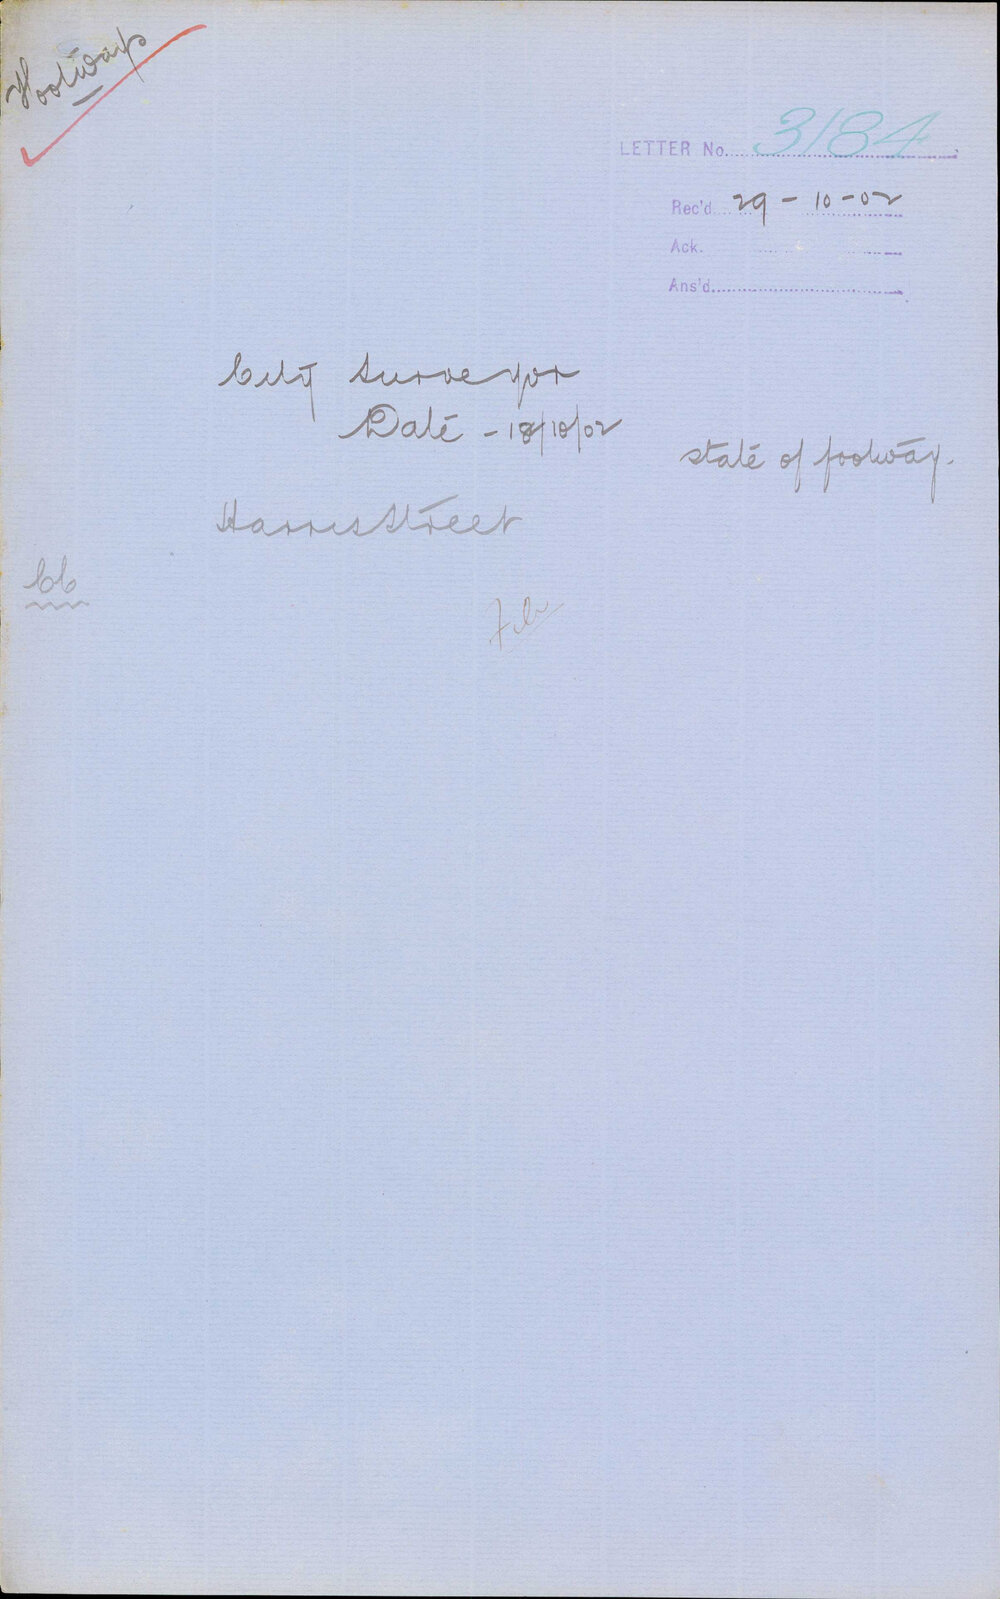 Footways
LETTER No. 3184
Rec'd 29-10-02
Ack.
Ans'd
City Surveyor
Date - 18/10/02
state of footway.
Harris Street
CC
File